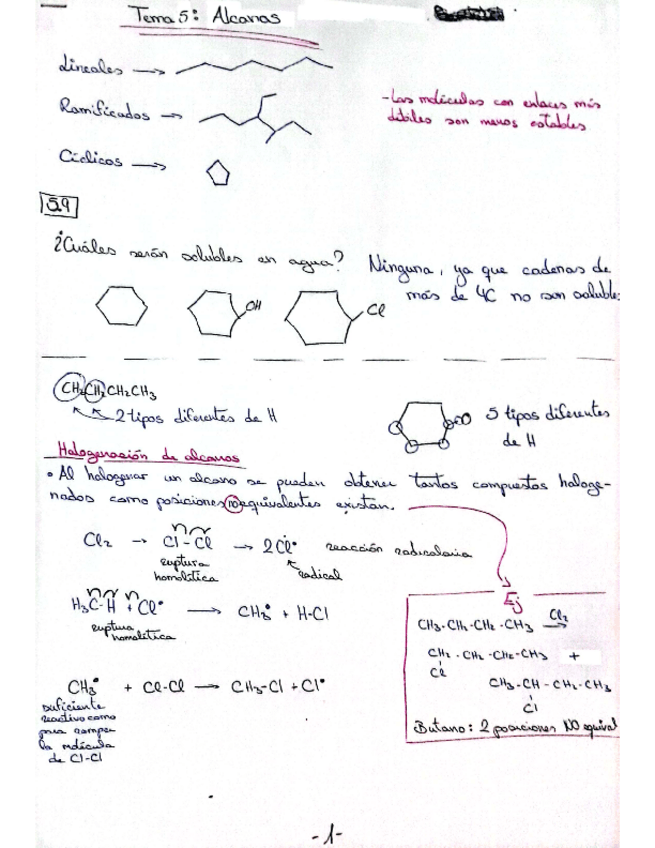 Tema 5: Alcanos
Lineales →
Ramificados →
Cíclicos →
- Las moléculas con enlaces más
débiles son menos estables
5.9
¿Cuáles serán solubles en agua?
Ninguna, ya que cadenas de
más de 4C no son soluble
OH
Cl
CH3CH2CH2CH3
2 tipos diferentes de H
5 tipos diferentes
de H
Halogenación de alcanos
• Al halogenar un alcano se pueden obtener tantos compuestos haloge-
nados como posiciones no equivalentes existan.
Cl2 → Cl-Cl → 2Cl• reacción radicalaria
ruptura
homolítica
radical
H3C-H + Cl• → CH3• + H-Cl
ruptura
homolítica
CH3• + Cl-Cl → CH3-Cl + Cl•
suficiente
reactivo como
para romper
la molécula
de Cl-Cl
Ej
CH3-CH2-CH2-CH3 Cl2 →
CH2-CH2-CH2-CH3 +
Cl
CH3-CH-CH2-CH3
Cl
Butano: 2 posiciones NO equival
-1-